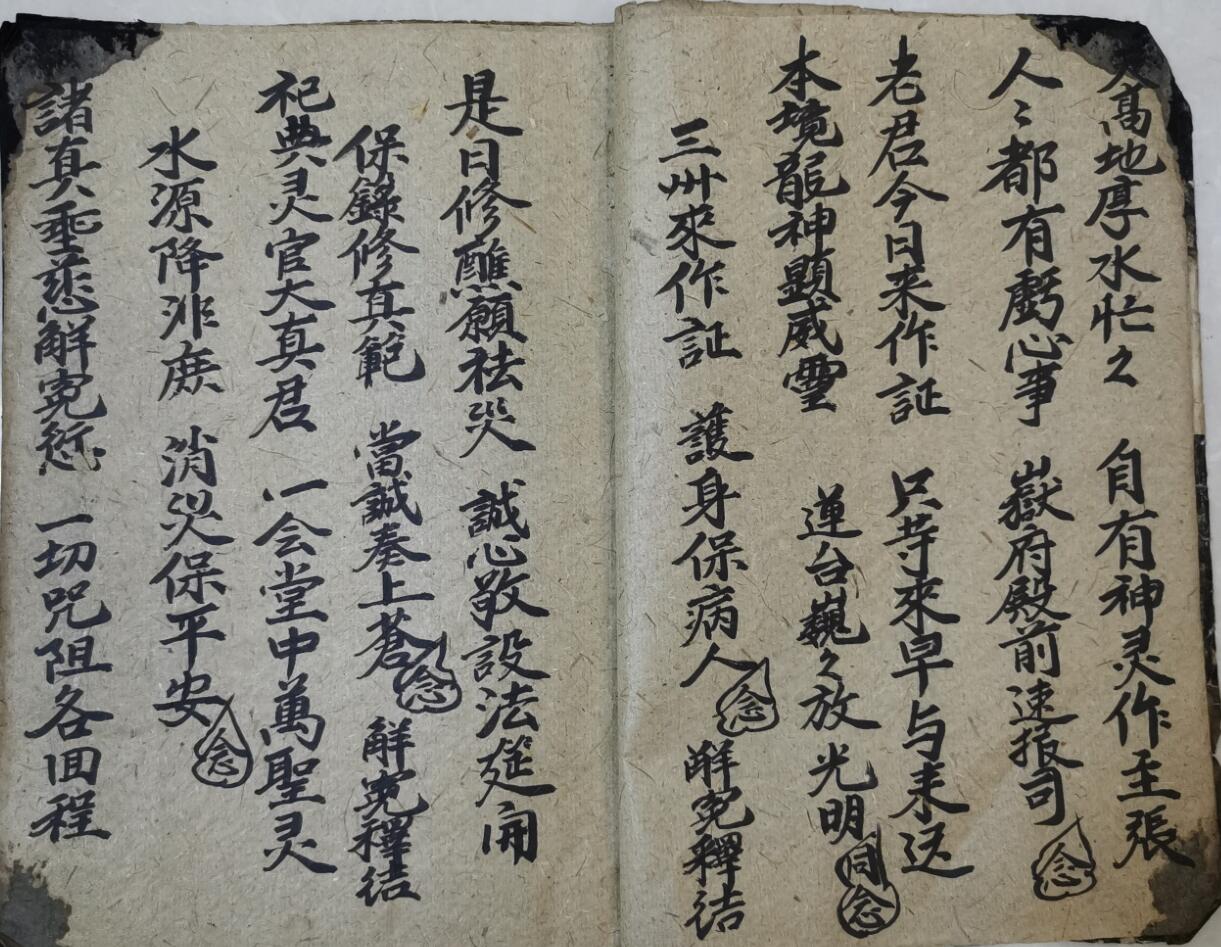 天高地厚水忙々 自有神灵作主張
人々都有虧心事 嶽府殿前速报司 念
老君今日来作証 只苛來早与来送
本境龍神顕威靈 蓮台巍々放光明 同念
三州來作証 護身保病人 念 解冤釋结
是日修醮願祛災 誠心敬設法筵開
保錄修真範 當誠奏上蒼 念 解冤釋结
祀典灵官大真君 一会堂中萬聖灵
水源降非庶 消災保平安 念
諸真垂慈解冤愆 一切咒阻各回程